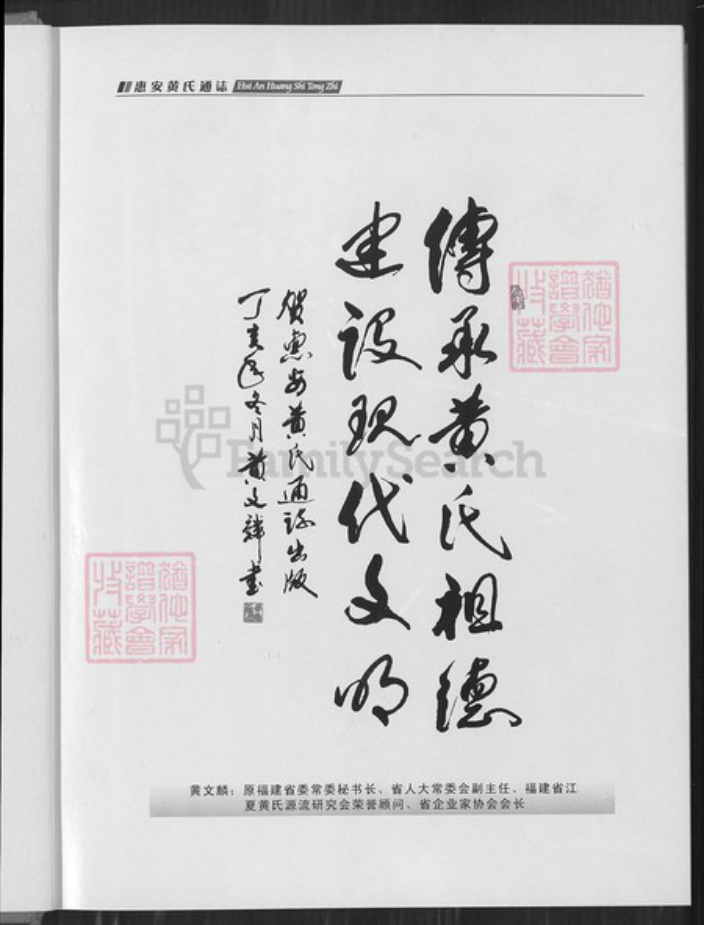 惠安黄氏通誌 Hui An Huang Shi Tong Zhi
傳承黄氏祖德
建设现代文明
贺惠安黄氏通誌出版
丁亥年冬月黄文麟書
FamilySearch
猶他家
譜學會
收藏
猶他家
譜學會
收藏
黄文麟：原福建省委常委秘书长、省人大常委会副主任、福建省江
夏黄氏源流研究会荣誉顾问、省企业家协会会长